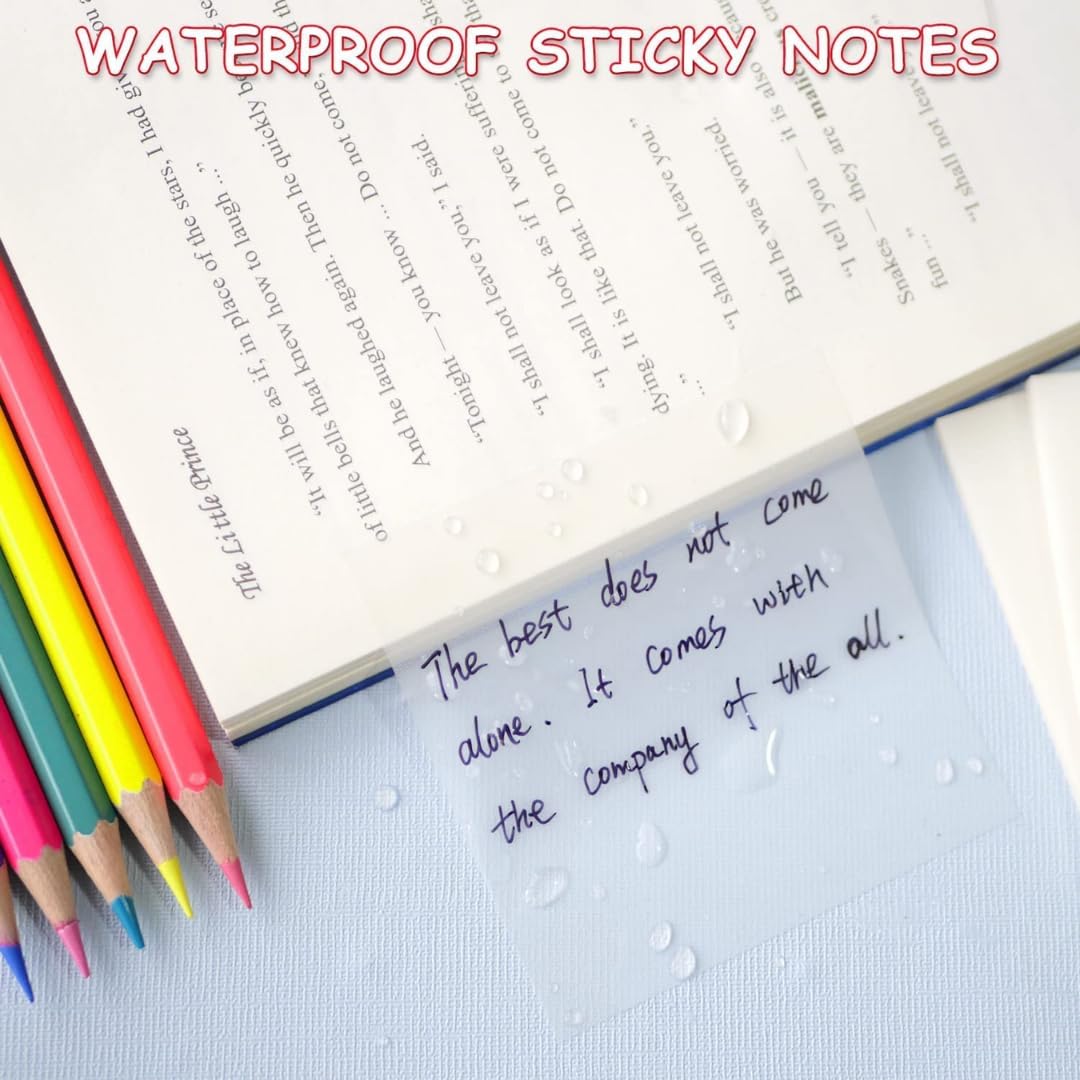 WATERPROOF STICKY NOTES
The Little Prince
"It will be as if, in place of the stars, I had giv
of little bells that knew how to laugh ..."
And he laughed again. Then he quickly be
"Tonight — you know ... Do not come,
"I shall not leave you," I said.
"I shall look as if I were sufferin
dying. It is like that. Do not come to
..."
"I shall not leave you."
But he was worried.
"I tell you — it is also
Snakes — they are malic
fun ..."
"I shall not leave
The best does not come
alone. It comes with
the company of the all.